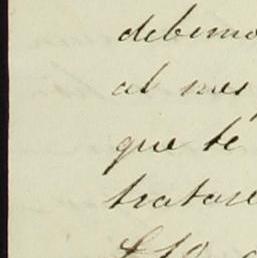 debemo
al mes,
que te
tratase